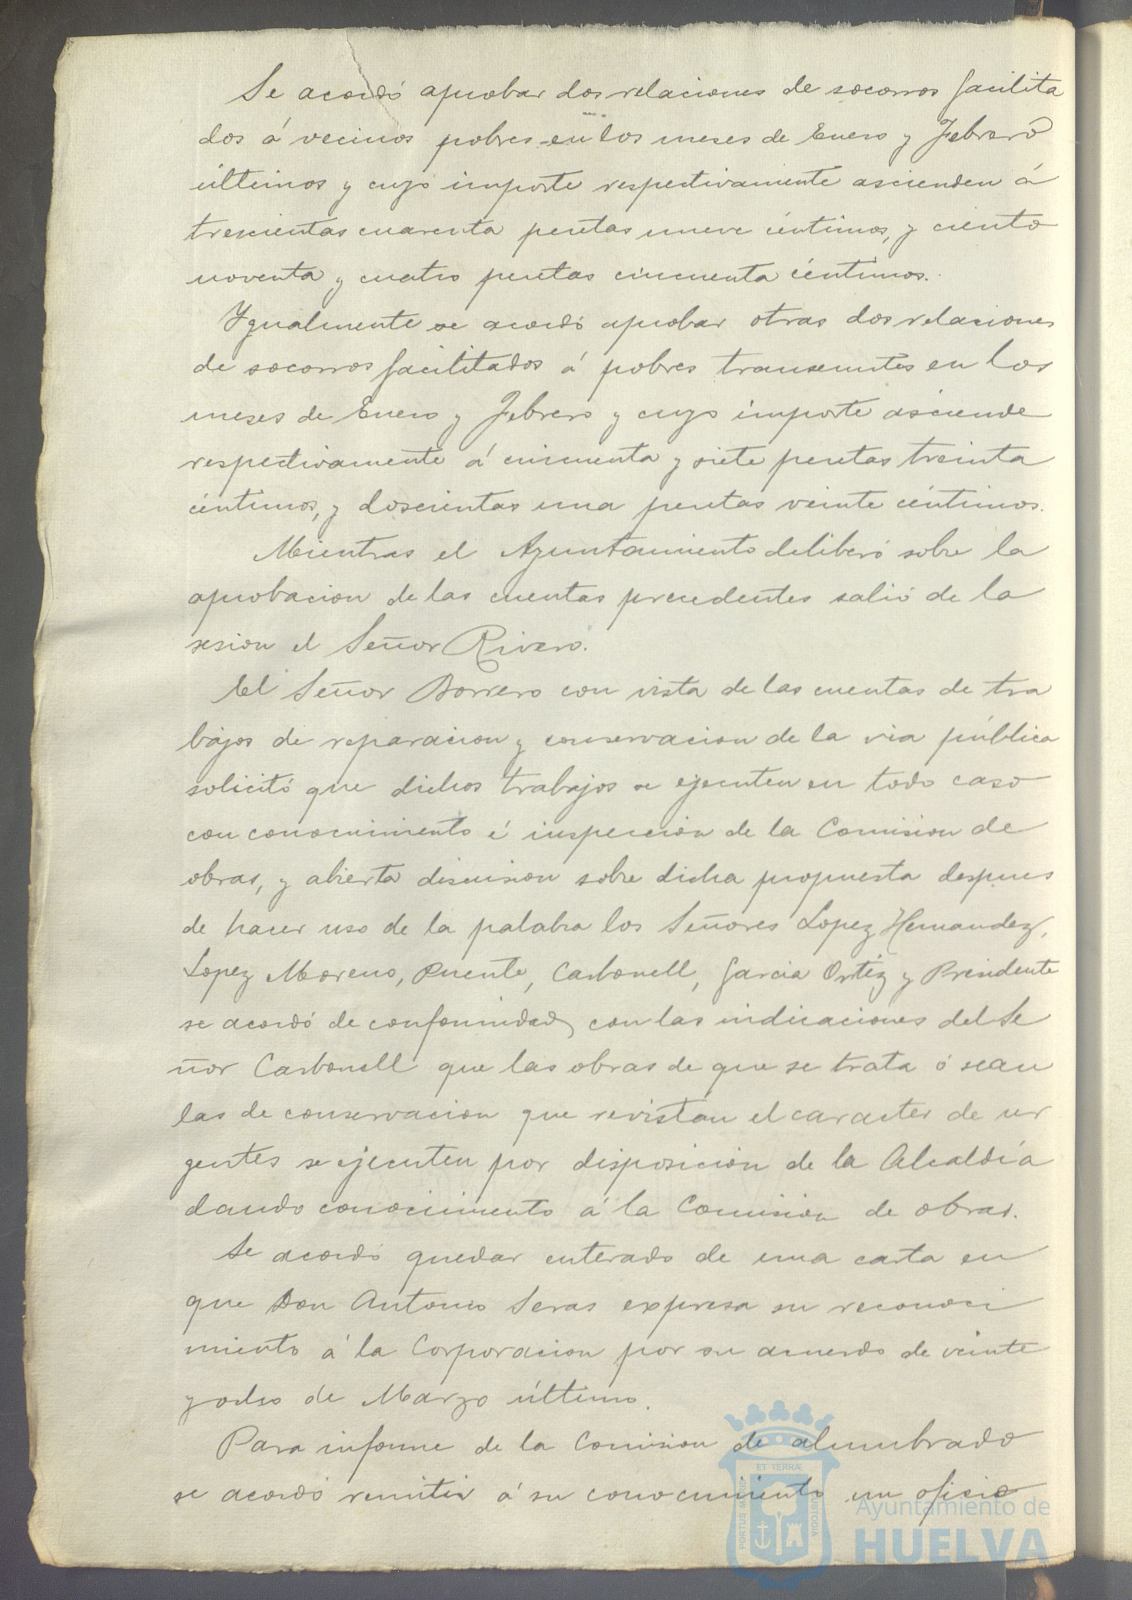 Se acordó aprobar dos relaciones de socorros facilita
dos á vecinos pobres en los meses de Enero y Febrero
últimos y cuyo importe respectivamente ascienden á
trescientas cuarenta pesetas nueve céntimos, y ciento
noventa y cuatro pesetas cincuenta céntimos.
Ygualmente se acordó aprobar otras dos relaciones
de socorros facilitados á pobres transeuntes en los
meses de Enero y Febrero y cuyo importe asciende
respectivamente á cincuenta y siete pesetas treinta
céntimos, y doscientas una pesetas veinte céntimos.
Mientras el Ayuntamiento deliberó sobre la
aprobacion de las cuentas precedentes salió de la
sesion el Señor Rivero.
El Señor Borrero con vista de las cuentas de tra
bajos de reparacion y conservacion de la via pública
solicitó que dichos trabajos se ejecuten en todo caso
con conocimiento é inspeccion de la Comision de
obras, y abierta discusion sobre dicha propuesta despues
de hacer uso de la palabra los Señores Lopez Hernandez,
Lopez Moreno, Puente, Carbonell, Garcia Ortiz y Presidente
se acordó de conformidad con las indicaciones del Se
ñor Carbonell que las obras de que se trata ó sean
las de conservacion que revistan el caracter de ur
gentes se ejecuten por disposicion de la Alcaldía
dando conocimiento á la Comision de obras.
Se acordó quedar enterado de una carta en
que Don Antonio Seras expresa su reconoci
miento á la Corporacion por su acuerdo de veinte
y ocho de Marzo último.
Para informe de la Comision de alumbrado
se acordó remitir á su conocimiento un oficio
PORTUS MARIS
ET TERRÆ
CUSTODIA
Ayuntamiento de
HUELVA